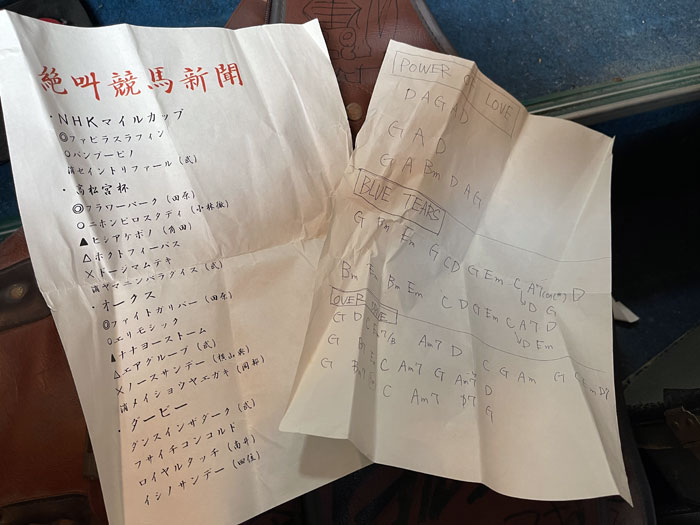 絶叫競馬新聞
・NHKマイルカップ
◎ファビラスラフィン
○バンブーピノ
消セイントリファール(武)
・高松宮杯
◎フラワーパーク(田原)
○ニホンピロスタディ(小林徹)
▲ヒシアケボノ(角田)
△ホクトフィーバス
×ドージマムテキ
消ヤマニンパラダイス(武)
・オークス
◎ファイトガリバー(田原)
○エリモシック
▲ナナヨーストーム
△エアグルーブ(武)
×ノースサンデー(横山典)
消メイショウヤエガキ(岡部)
・ダービー
ダンスインザダーク(武)
フサイチコンコルド
ロイヤルタッチ(南井)
イシノサンデー(四位)
POWER OF LOVE
D A G A D
G A D
G A Bm D A G
BLUE TEARS
G Em Em G C D G Em C A7 D
D G
Bm Em Bm Em C D G Em C A7 D
D Em
G D C Em7/B Am7 D C G Am G C Em D7
G C Am7 G Am7 D
G C Am7 D7 G